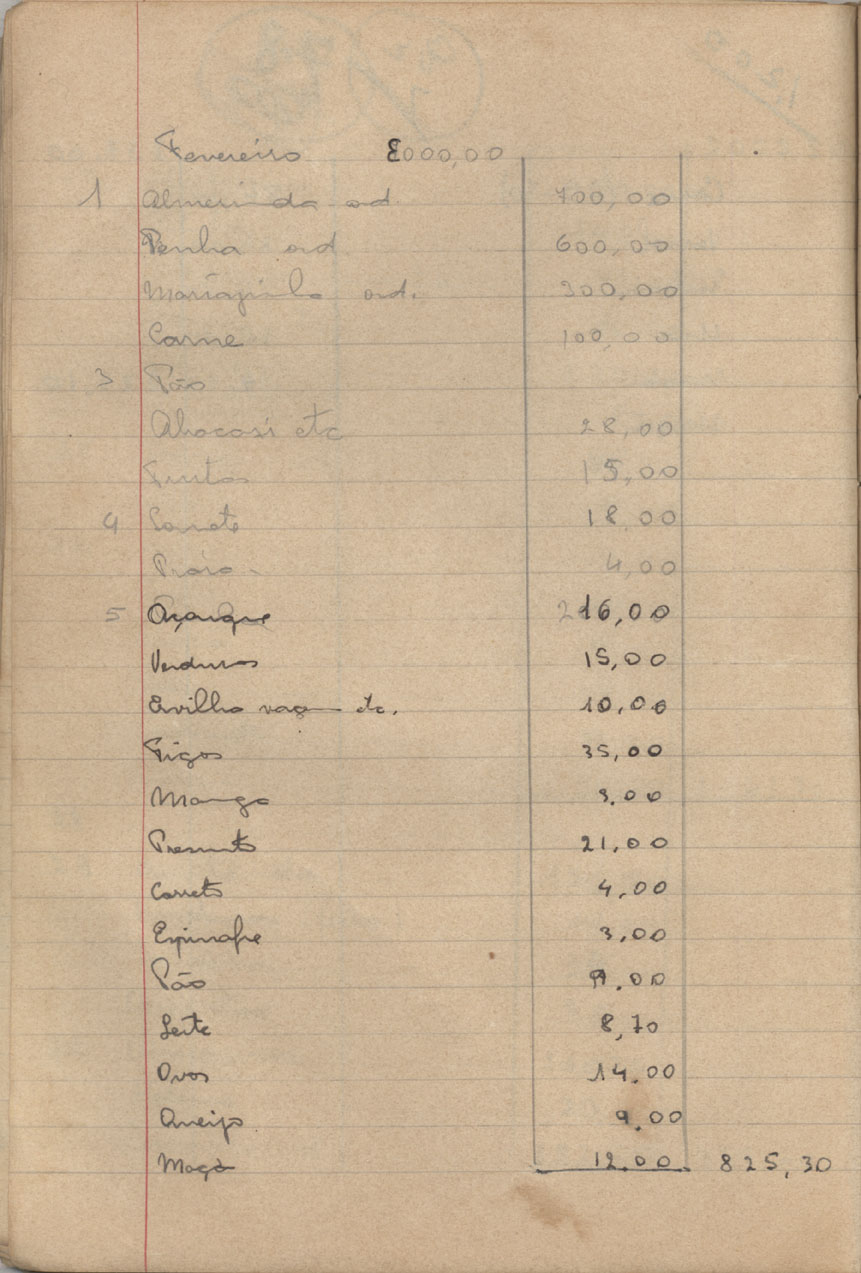 Fevereiro 8000,00
1 Almerinda ord. 700,00
Penha ord. 600,00
Mariazinha ord. 300,00
Carne 100,00
3 Pão
Abacaxi etc 28,00
Frutas 15,00
4 Carreto 18,00
4,00
5 Açougue 216,00
Verduras 15,00
Ervilha vagem etc. 10,00
Figos 35,00
Manga 3.00
Presunto 21,00
Carreto 4,00
Espinafre 3,00
Pão 9.00
Leite 8,70
Ovos 14.00
Queijo 9.00
Maçã 12.00 825,30